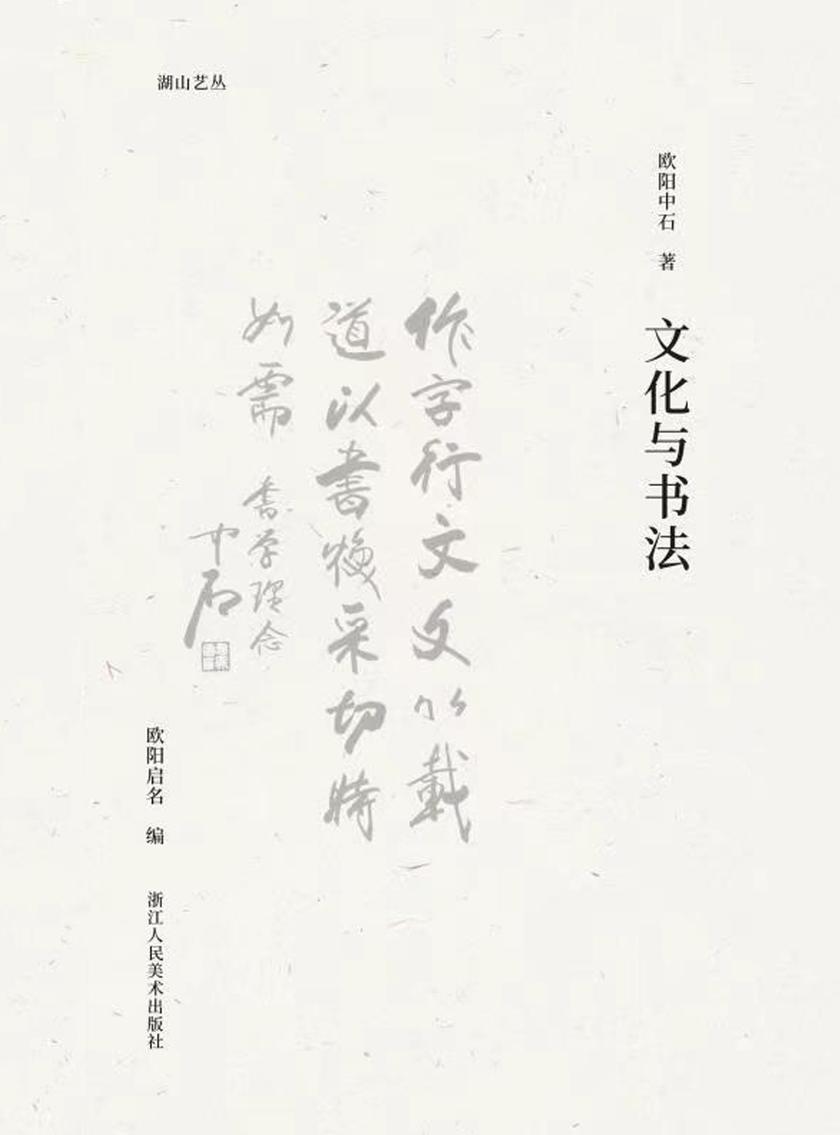 湖山艺丛
欧阳中石 著
文化与书法
作字行文文以載
道以書煥采切時
如需 書学理念
中石
欧阳启名 编
浙江人民美术出版社